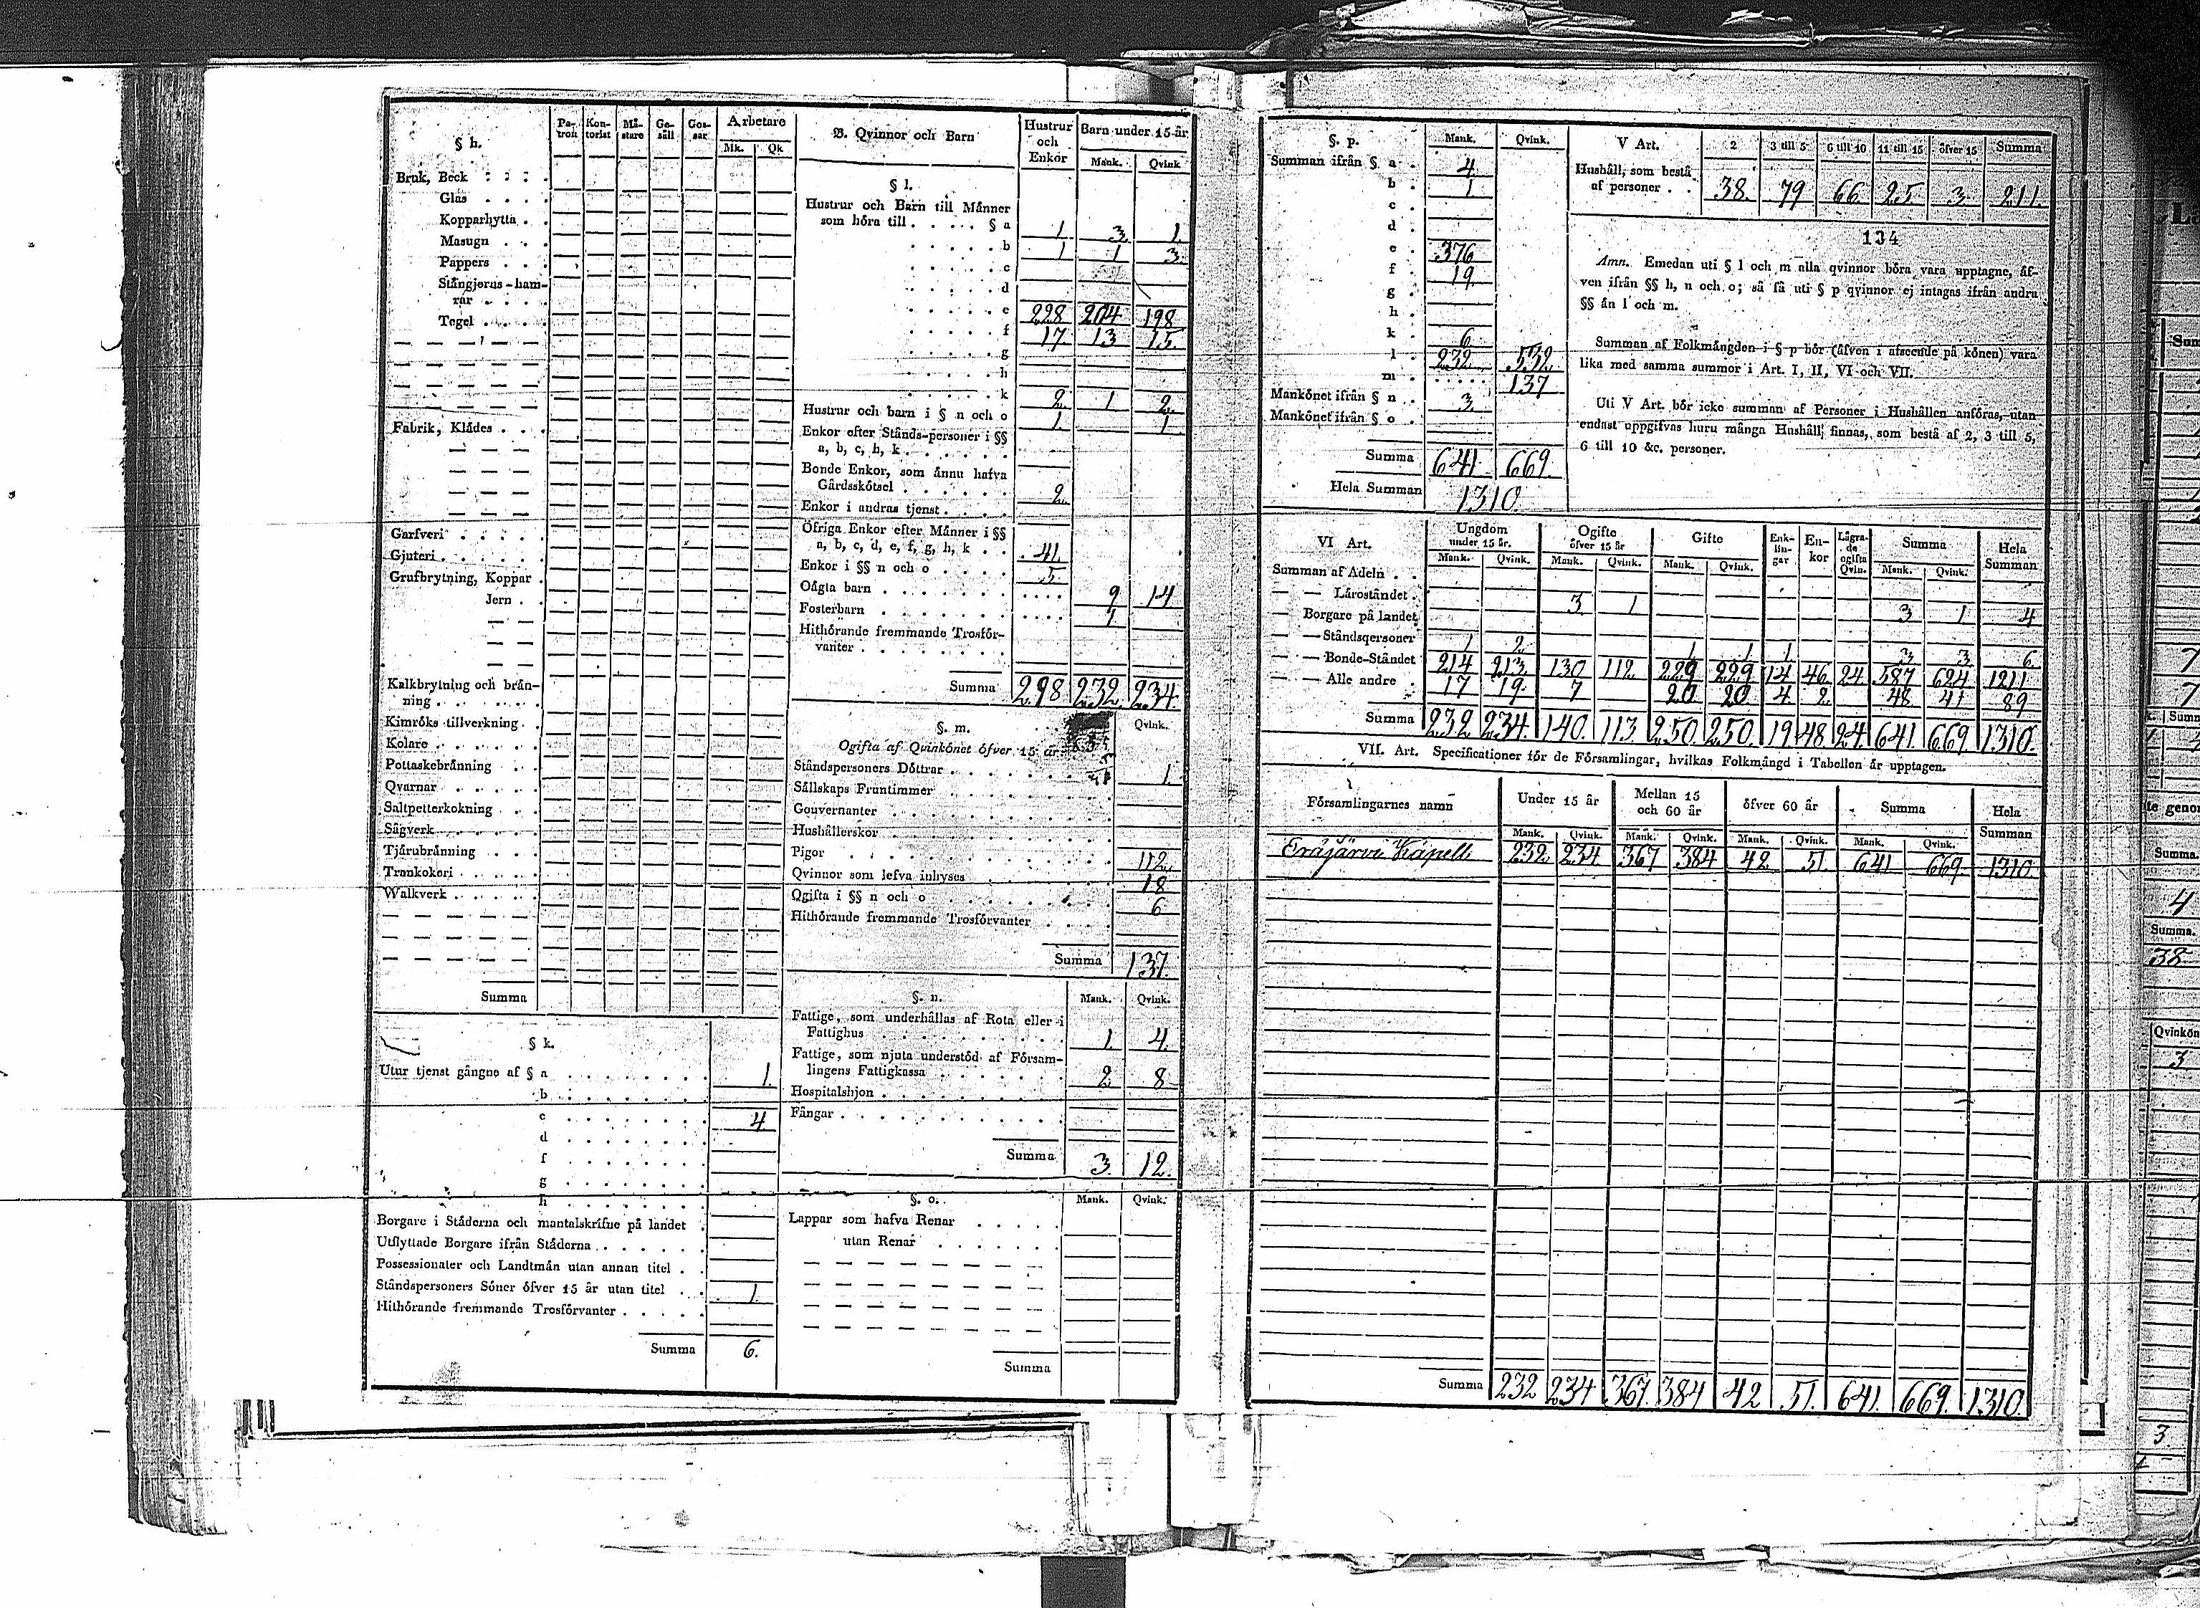 § h.
Pa-tron Kon-torist Mä-stare Ge-säll Gos-sar Arbetare
Mk. Qk
Bruk, Beck
Glas
Kopparhytta
Masugn
Pappers
Stångjerns-ham-
rar
Tegel
Fabrik, Klädes
Garfveri
Gjuteri
Grufbrytning, Koppar
Jern
Kalkbrytning och brän-
ning
Kimröks tillverkning
Kolare
Pottaskebränning
Qvarnar
Saltpetterkokning
Sågverk
Tjärubränning
Trankokeri
Walkverk
Summa
§ k.
Utur tjenst gångne af § a 1.
b
c 4
d
f
g
h
Borgare i Städerna och mantalskrifne på landet
Utflyttade Borgare ifrån Städerna
Possessionater och Landtmän utan annan titel
Ståndspersoners Söner öfver 15 år utan titel 1.
Hithörande fremmande Trosförvanter
Summa 6.
B. Qvinnor och Barn
Hustrur och Enkor Barn under 15 år
Mank. Qvink
§ l.
Hustrur och Barn till Männer
som höra till § a 1 3. 1.
b 1 1 3.
c
d
e 228 204 198
f 17. 13 15.
g
h
k 2. 1 2.
Hustrur och barn i § n och o 1. 1
Enkor efter Stånds-personer i §§
a, b, c, h, k
Bonde Enkor, som ännu hafva
Gårdsskötsel 2.
Enkor i andras tjenst
Öfriga Enkor efter Männer i §§
a, b, c, d, e, f, g, h, k 41.
Enkor i §§ n och o 5.
Oägta barn 9 14
Fosterbarn 1
Hithörande fremmande Trosför-
vanter
Summa 298 232. 234.
§. m. Qvink.
Ogifta af Qvinkönet öfver 15 år
Ståndspersoners Döttrar 1.
Sällskaps Fruntimmer
Gouvernanter
Hushållerskor
Pigor 112
Qvinnor som lefva inhyses 18
Ogifta i §§ n och o 6
Hithörande fremmande Trosförvanter
Summa 137.
§. n. Mank. Qvink.
Fattige, som underhållas af Rota eller i
Fattighus 1. 4.
Fattige, som njuta understöd af Försam-
lingens Fattigkassa 2 8
Hospitalshjon
Fångar
Summa 3. 12.
§. o. Mank. Qvink.
Lappar som hafva Renar
utan Renar
Summa
§. p. Mank. Qvink.
Summan ifrån § a 4
b 1.
c
d
e 376
f 19.
g
h
k 6
l 232 532
m 137
Mankönet ifrån § n 3.
Mankönet ifrån § o
Summa 641. 669.
Hela Summan 1310.
V Art. 2 3 till 5 6 till 10 11 till 15 öfver 15 Summa
Hushåll, som bestå
af personer 38. 79 66 25 3 211.
134
Anm. Emedan uti § l och m alla qvinnor böra vara upptagne, äf-
ven ifrån §§ h, n och o; så få uti § p qvinnor ej intagas ifrån andra
§§ än l och m.
Summan af Folkmängden i § p bör (äfven i afseende på könen) vara
lika med samma summor i Art. I, II, VI och VII.
Uti V Art. bör icke summan af Personer i Hushållen anföras, utan
endast uppgifvas huru många Hushåll finnas, som bestå af 2, 3 till 5,
6 till 10 &c. personer.
VI Art. Ungdom under 15 år. Ogifte öfver 15 år Gifte Enk-lin-gar En-kor Lägra-de ogifta Qvin. Summa Hela Summan
Mank. Qvink. Mank. Qvink. Mank. Qvink. Mank. Qvink.
Summan af Adeln
— — Läroståndet 3 1 3 1 4
— Borgare på landet
— — Ståndspersoner 1 2 1 1 1 3 3. 6.
— — Bonde-Ståndet 214 213. 130 112. 229 229 14 46 24 587 624 1211
— — Alle andre 17 19. 7 20 20 4 2 48 41 89
Summa 232 234. 140. 113. 250. 250. 19 48 24. 641. 669 1310.
VII. Art. Specificationer för de Församlingar, hvilkas Folkmängd i Tabellen är upptagen.
Församlingarnes namn Under 15 år Mellan 15 och 60 år öfver 60 år Summa Hela Summan
Mank. Qvink. Mank. Qvink. Mank. Qvink. Mank. Qvink.
Eräjärvi Kapell 232 234 367 384 42 51. 641 669. 1310.
Summa 232 234 367. 384 42 51. 641. 669. 1310.